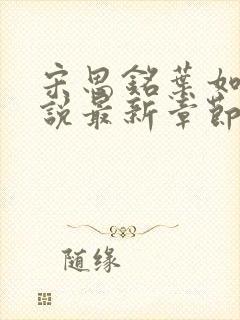 宋思銘葉如
說最新章節
随缘